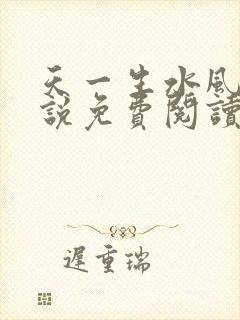 天一生水風
說免費閱讀
遲重瑞